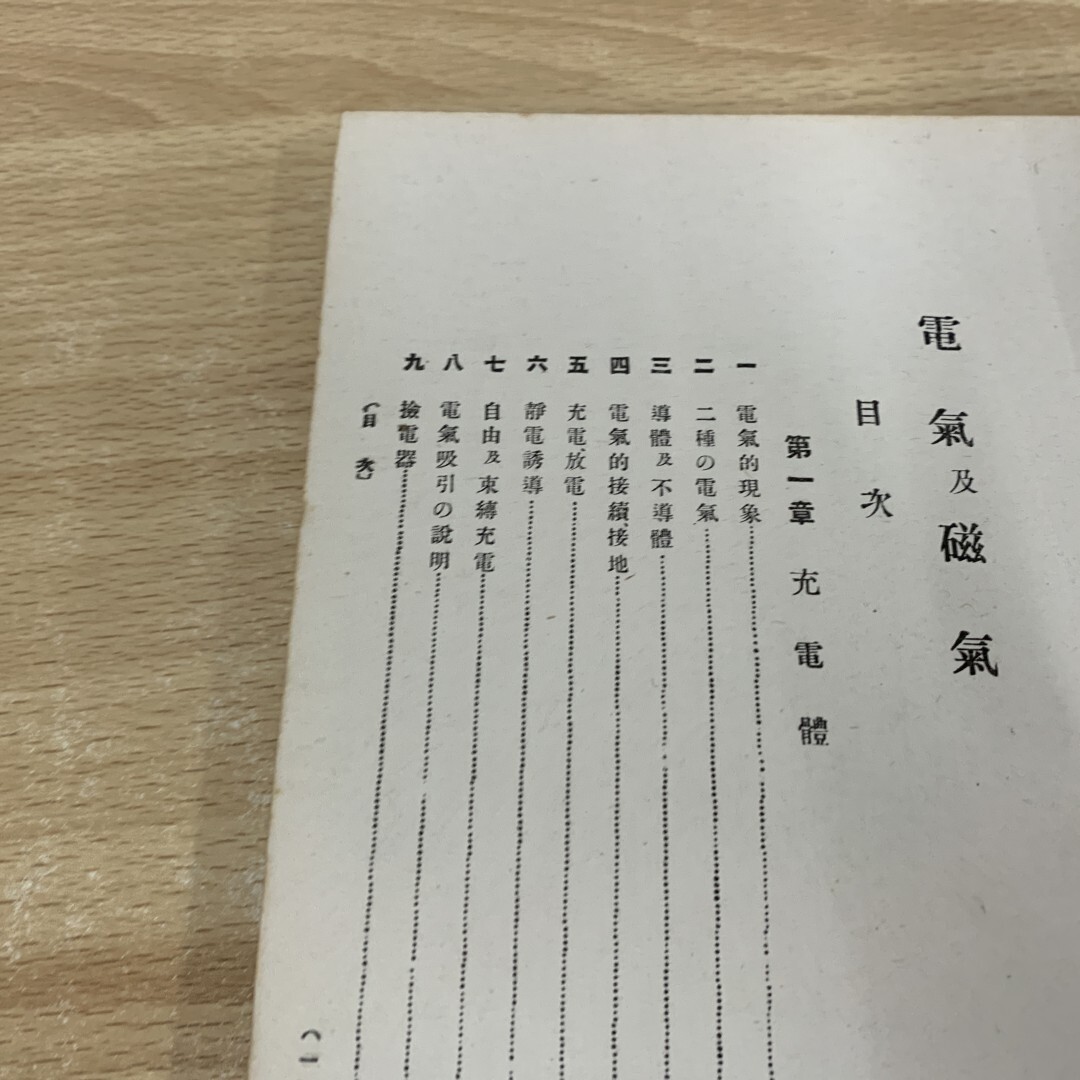 電氣及磁氣
目次
第一章 充電體
一 電氣的現象
二 二種の電氣
三 導體及不導體
四 電氣的接續、接地
五 充電、放電
六 靜電誘導
七 自由及束縛充電
八 電氣吸引の說明
九 撿電器
(目次)
(一